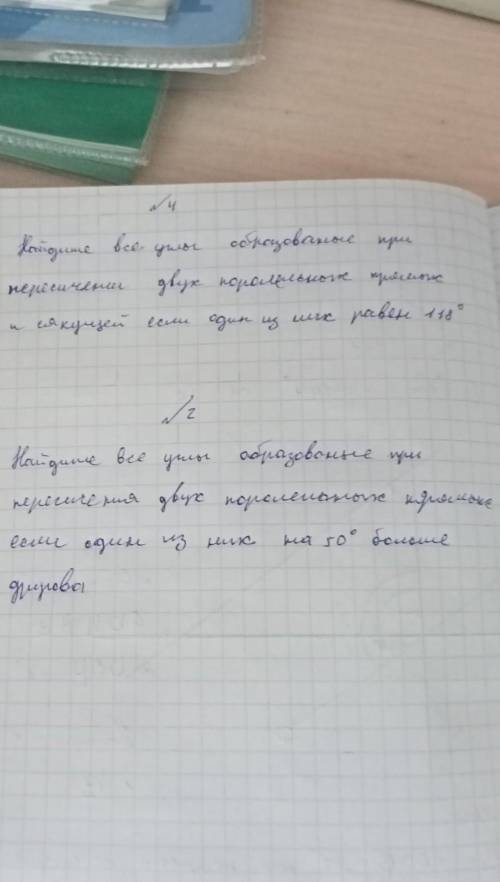 №4
Найдите все углы образованые при
пересичении двух поролельных прямых
и сякущей если один из них равен 118°
№2
Найдите все углы образованые при
пересичения двух поролельных прямых
если один из них на 50° больше
другова